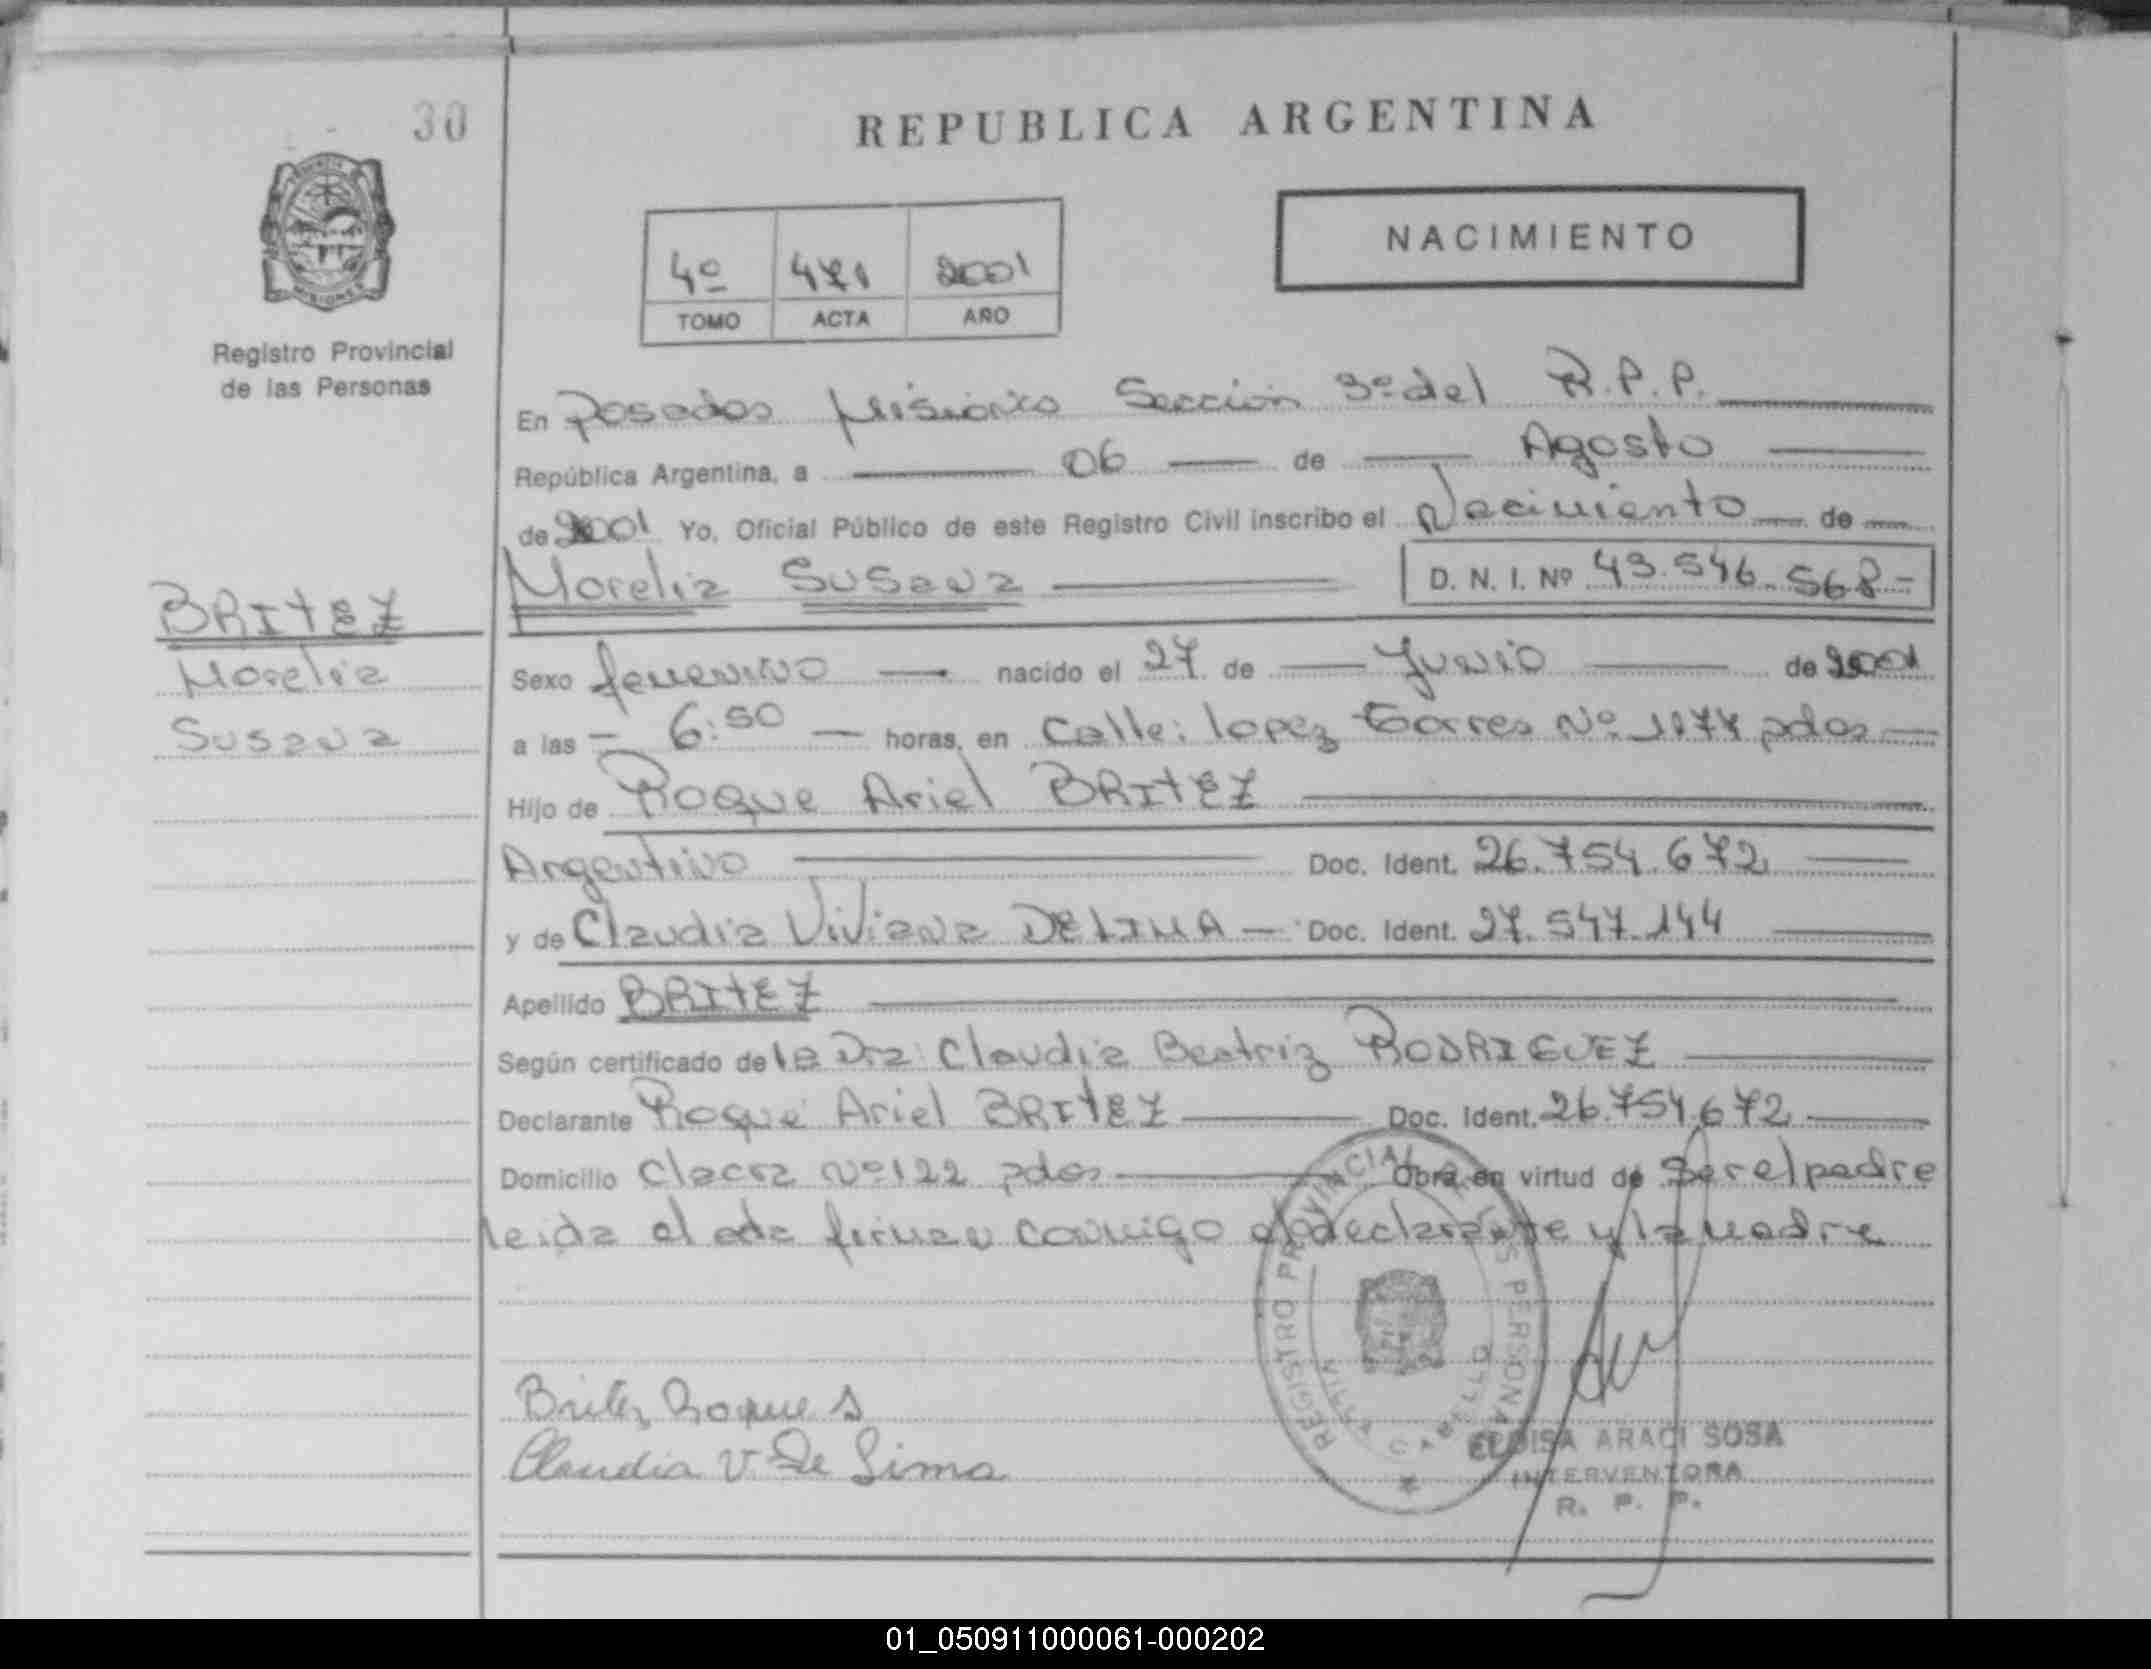 30
REPUBLICA ARGENTINA
NACIMIENTO
4º 471 2001
TOMO ACTA AÑO
Registro Provincial
de las Personas
En Posadas Misiones Sección 3º del R.P.P.
República Argentina, a 06 de Agosto
de 2001 Yo, Oficial Público de este Registro Civil inscribo el Nacimiento de
Morelia Susana D. N. I. Nº 43.546.568-
BRITEZ
Morelia
Susana
Sexo femenino nacido el 27 de Junio de 2001
a las - 6:50 horas, en Calle: lopez torres Nº pdas
Hijo de Roque Ariel BRITEZ
Argentino Doc. Ident. 26.754.672
y de Claudia Viviana DE LIMA Doc. Ident. 27.547.144
Apellido BRITEZ
Según certificado de la Dra: Claudia Beatriz RODRIGUEZ
Declarante Roque Ariel BRITEZ Doc. Ident. 26.754.672
Domicilio Chacra Nº 122 pdas Obra en virtud de Ser el padre
leida el acta firman conmigo el declarante y la madre
Britez Roque A
Claudia V. De Lima
REGISTRO PROVINCIAL PERSONAS
CABELLO
ELOISA ARACI SOSA
INTERVENTORA
R. P. P.
01_050911000061-000202